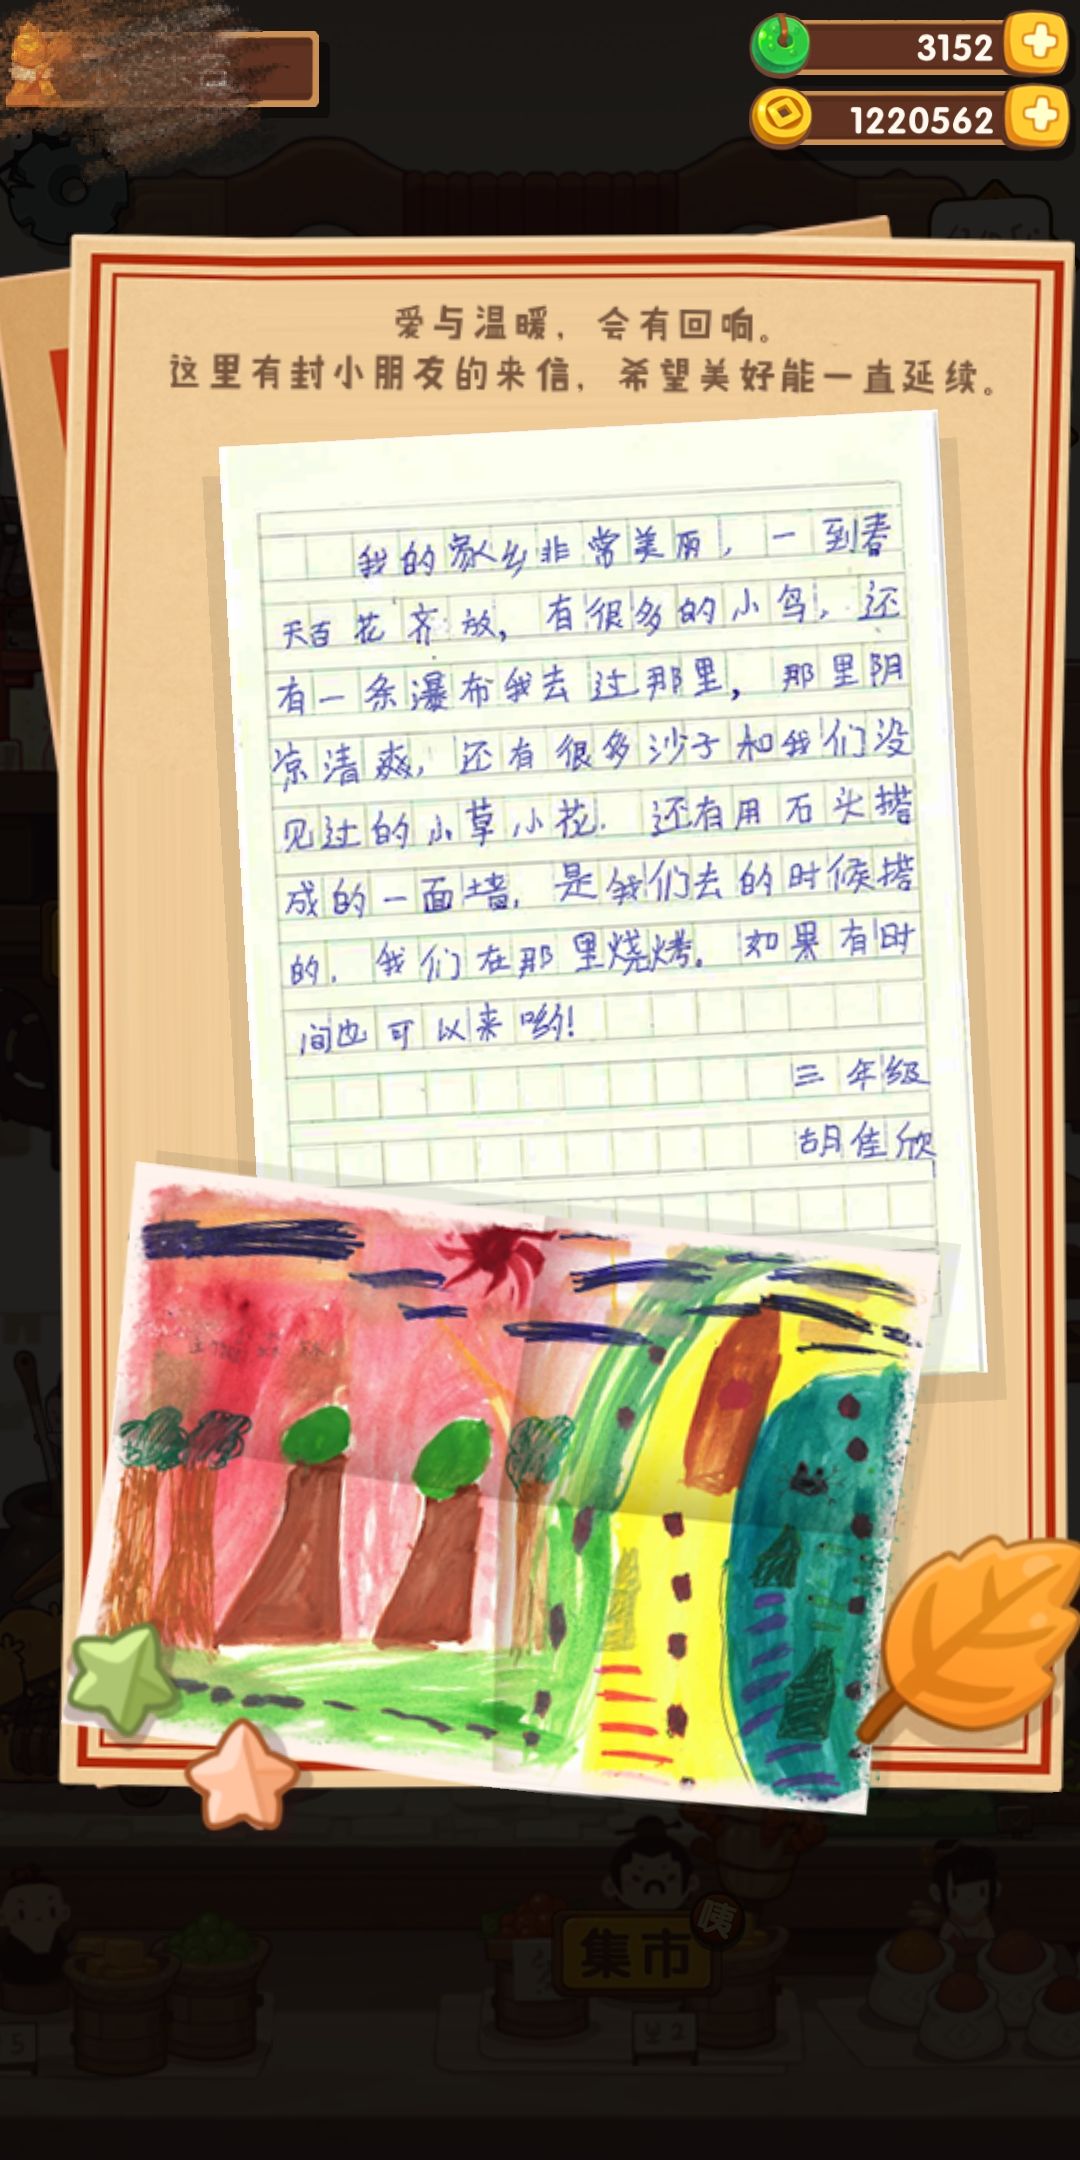 3152
1220562
爱与温暖，会有回响。
这里有封小朋友的来信，希望美好能一直延续。
我的家乡非常美丽，一到春
天百花齐放，有很多的小鸟，还
有一条瀑布我去过那里，那里阴
凉清爽，还有很多沙子和我们没
见过的小草小花．还有用石头搭
成的一面墙，是我们去的时候搭
的．我们在那里烧烤。如果有时
间也可以来哟！
三年级
胡佳欣
咦
集市